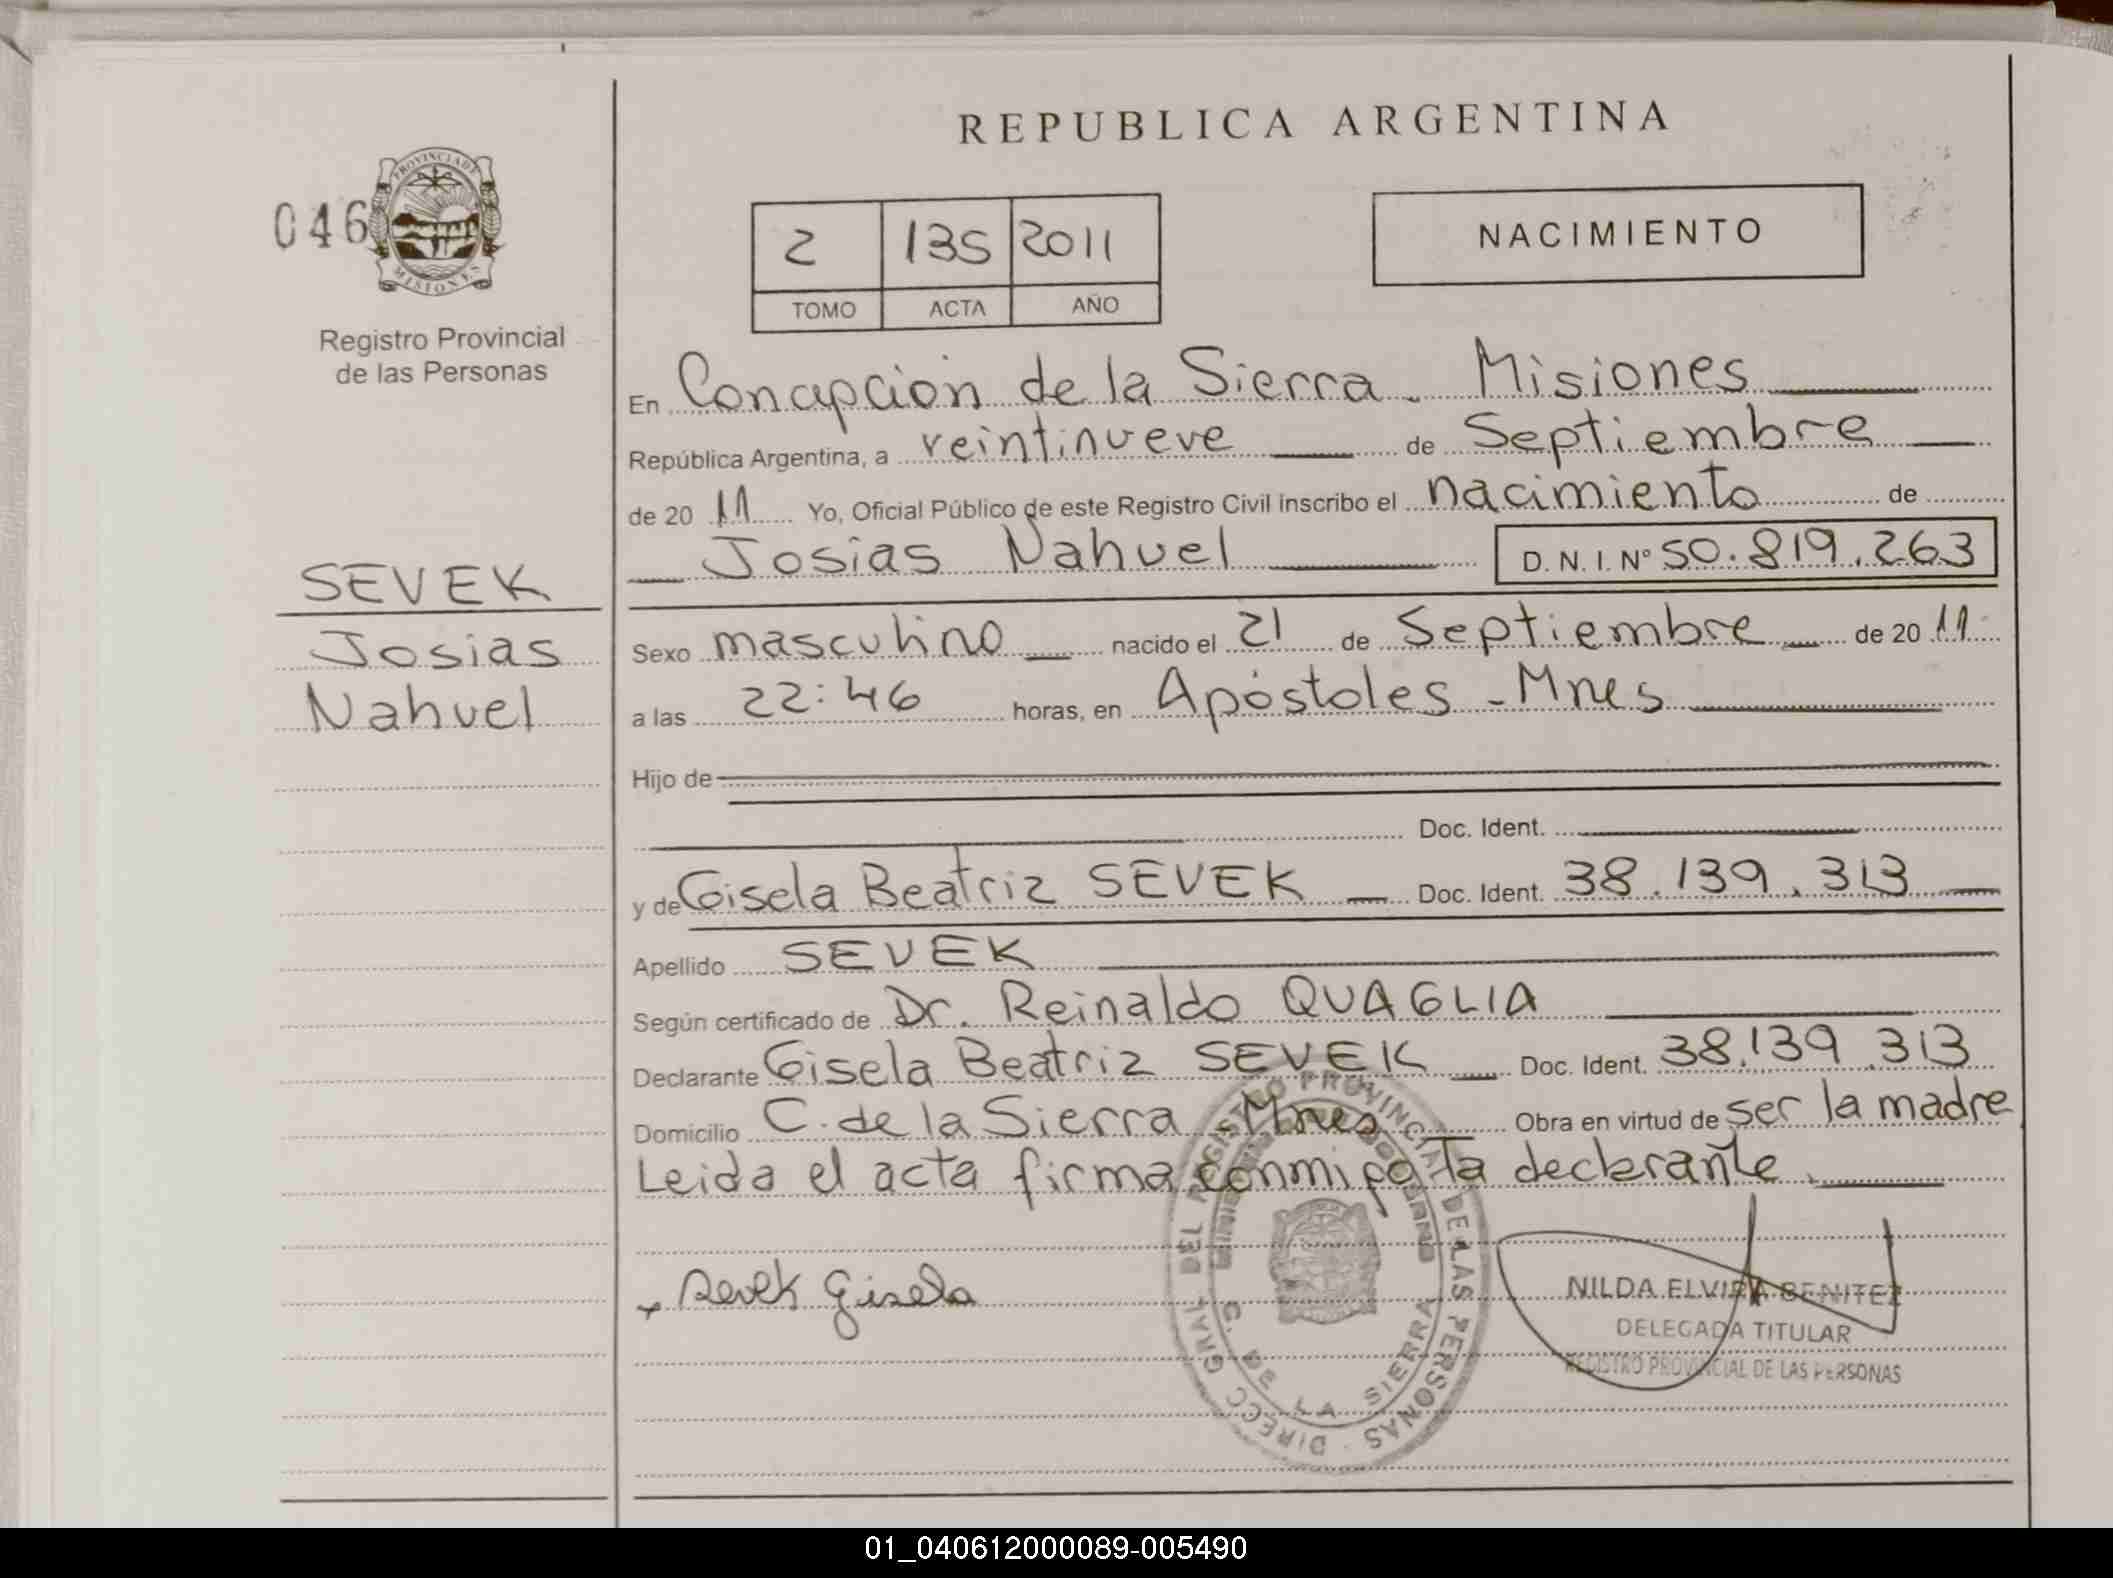 REPUBLICA ARGENTINA
046
PROVINCIA DE
MISIONES
Registro Provincial
de las Personas
2 135 2011
TOMO ACTA AÑO
NACIMIENTO
SEVEK
Josias
Nahuel
En Concapcion de la Sierra. Misiones
República Argentina, a veintinueve de Septiembre
de 20 11 Yo, Oficial Público de este Registro Civil inscribo el nacimiento de
Josias Nahuel D. N. I. Nº 50.819.263
Sexo masculino nacido el 21 de Septiembre de 20 11
a las 22:46 horas, en Apóstoles - Mnes
Hijo de
Doc. Ident.
y de Gisela Beatriz SEVEK Doc. Ident. 38.139.313
Apellido SEVEK
Según certificado de Dr. Reinaldo QUAGLIA
Declarante Gisela Beatriz SEVEK Doc. Ident. 38.139.313
Domicilio C. de la Sierra - Mnes Obra en virtud de ser la madre
Leida el acta firma conmigo la declarante.
Sevek Gisela
DIRECC GRAL DEL REGISTRO PROVINCIAL DE LAS PERSONAS
C. DE LA SIERRA
NILDA ELVIRA BENITEZ
DELEGADA TITULAR
REGISTRO PROVINCIAL DE LAS PERSONAS
01_040612000089-005490